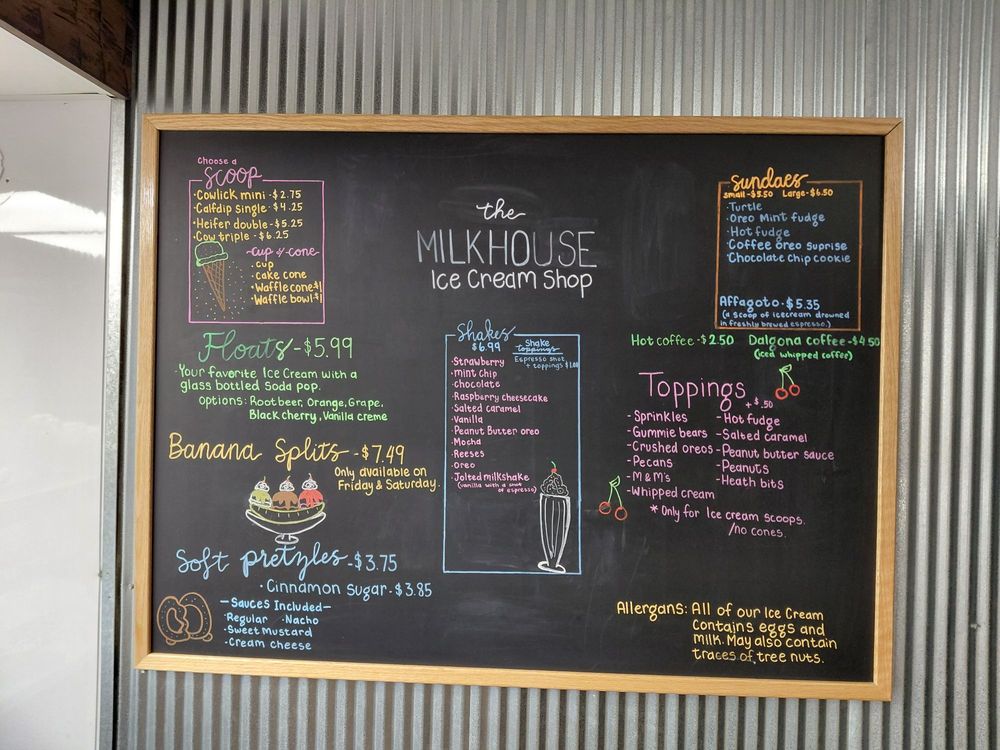 Choose a
Scoop
·Cowlick mini -$2.75
·Calfdip single -$4.25
·Heifer double -$5.25
·Cow triple -$6.25
~cup or cone~
·cup
·cake cone
·Waffle cone $1
·Waffle bowl $1
Floats -$5.99
·Your favorite Ice Cream with a
glass bottled Soda pop.
Options: Rootbeer, Orange, Grape,
Black cherry, Vanilla creme
Banana Splits -$7.49
Only available on
Friday & Saturday.
Soft pretzles -$3.75
·Cinnamon Sugar -$3.85
-Sauces Included-
·Regular ·Nacho
·Sweet Mustard
·Cream cheese
the
MILKHOUSE
Ice Cream Shop
Shakes
$6.99
Shake
toppings
Espresso shot
+ toppings $1.00
·Strawberry
·mint Chip
·chocolate
·Raspberry cheesecake
·Salted caramel
·Vanilla
·Peanut Butter oreo
·Mocha
·Reeses
·Oreo
·Jolted milkshake
(vanilla with a shot
of espresso)
Sundaes
small-$5.50 Large-$6.50
·Turtle
·Oreo Mint fudge
·Hot fudge
·Coffee oreo suprise
·Chocolate Chip cookie
Affagoto-$5.35
(a scoop of icecream drowned
in freshly brewed espresso.)
Hot coffee -$2.50 Dalgona coffee -$4.50
(iced whipped coffee)
Toppings
+ $.50
-Sprinkles -Hot fudge
-Gummie bears -Salted caramel
-Crushed oreos -Peanut butter sauce
-Pecans -Peanuts
-M&M's -Heath bits
-Whipped cream
* Only for Ice cream scoops.
/no cones.
Allergans: All of our Ice Cream
Contains eggs and
milk. May also contain
traces of tree nuts.